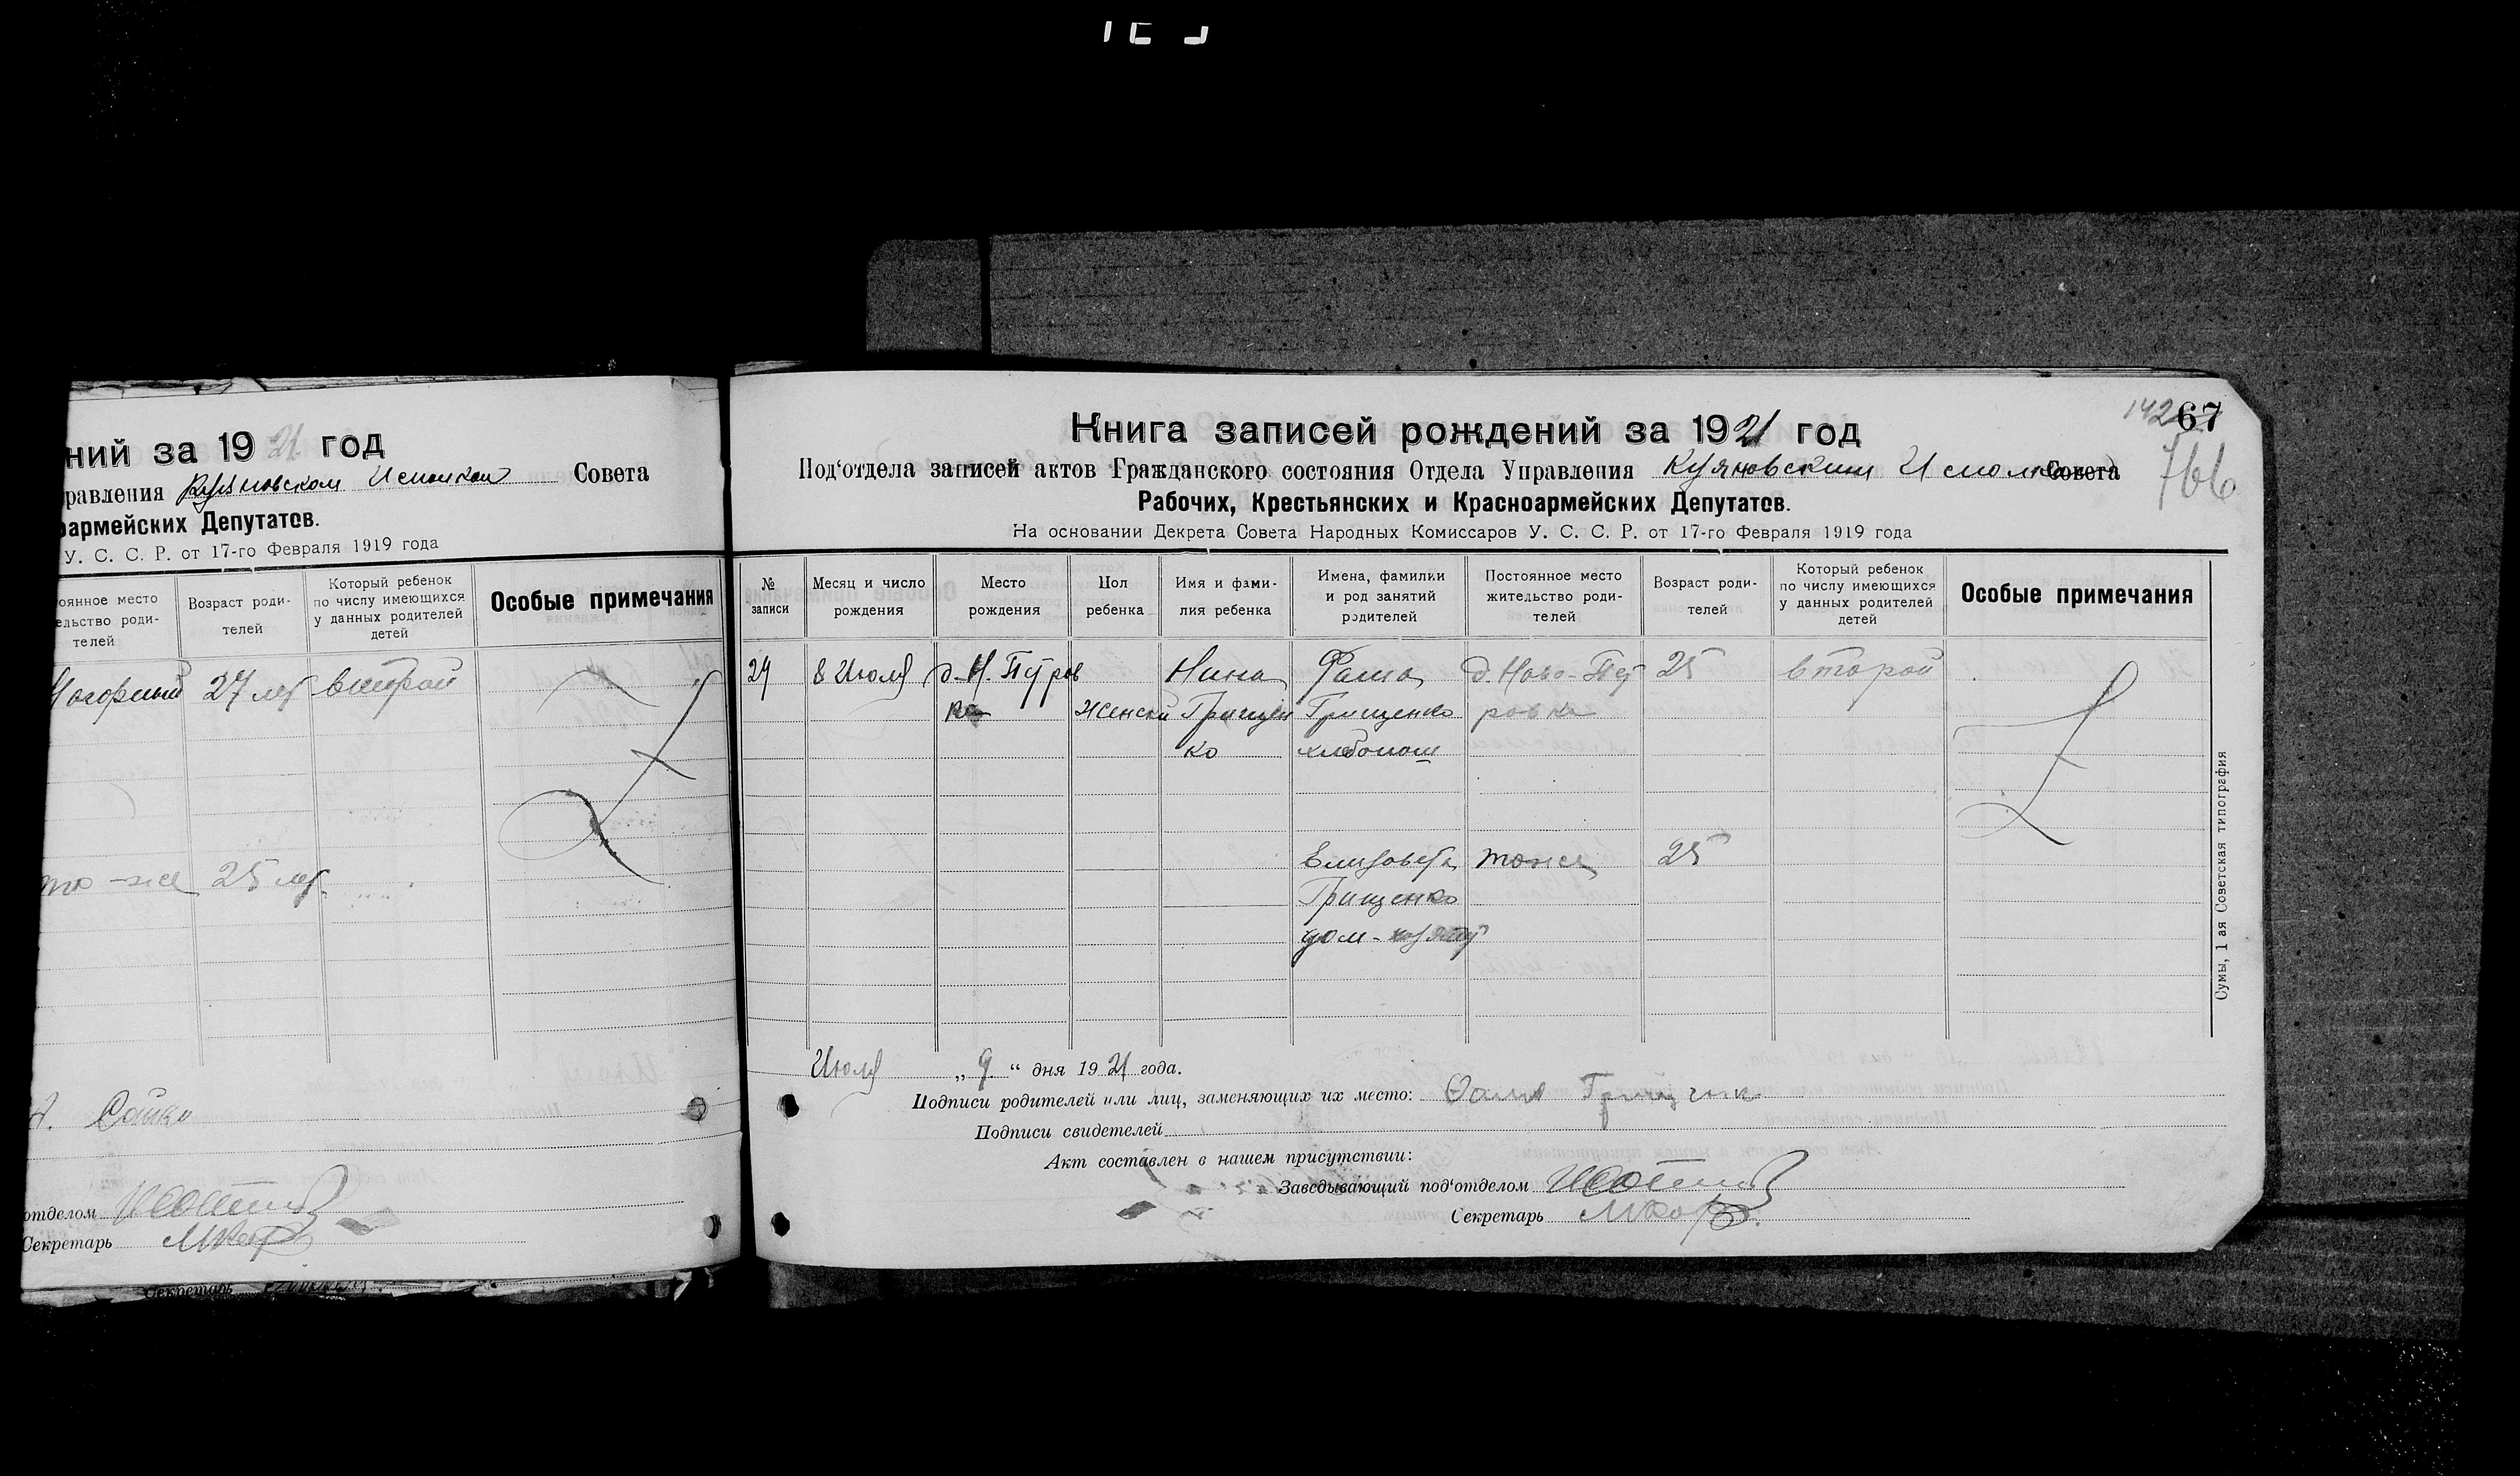 ний за 1921 год
равления Куяновском Исполком Совета
оармейских Депутатов.
У. С. С. Р. от 17-го Февраля 1919 года
оянное место
ельство роди-
телей
Возраст роди-
телей
Который ребенок
по числу имеющихся
у данных родителей
детей
Особые примечания
27 лет второй
то-же 25 лет
отделом
Секретарь
Секретарь
142 67
766
Книга записей рождений за 1921 год
Под‘отдела записей актов Гражданского состояния Отдела Управления Куяновским Исполком Совета
Рабочих, Крестьянских и Красноармейских Депутатов.
На основании Декрета Совета Народных Комиссаров У. С. С. Р. от 17-го Февраля 1919 года
№
записи
Месяц и число
рождения
Место
рождения
Пол
ребенка
Имя и фами-
лия ребенка
Имена, фамилии
и род занятий
родителей
Постоянное место
жительство роди-
телей
Возраст роди-
телей
Который ребенок
по числу имеющихся
у данных родителей
детей
Особые примечания
8 Июля д. Н. Петров Нина Фама д. Ново-Пет 25 второй
ка Женский Грищен Грищенко ровка
ко хлебопаш
Елизовета тоже 25
Грищенко
дом-хозяй
Июля „ 9 “ дня 1921 года.
Подписи родителей или лиц, заменяющих их место:
Подписи свидетелей
Акт составлен в нашем присутствии:
Заведывающий под‘отделом
Секретарь
Сумы, 1 ая Советская типография